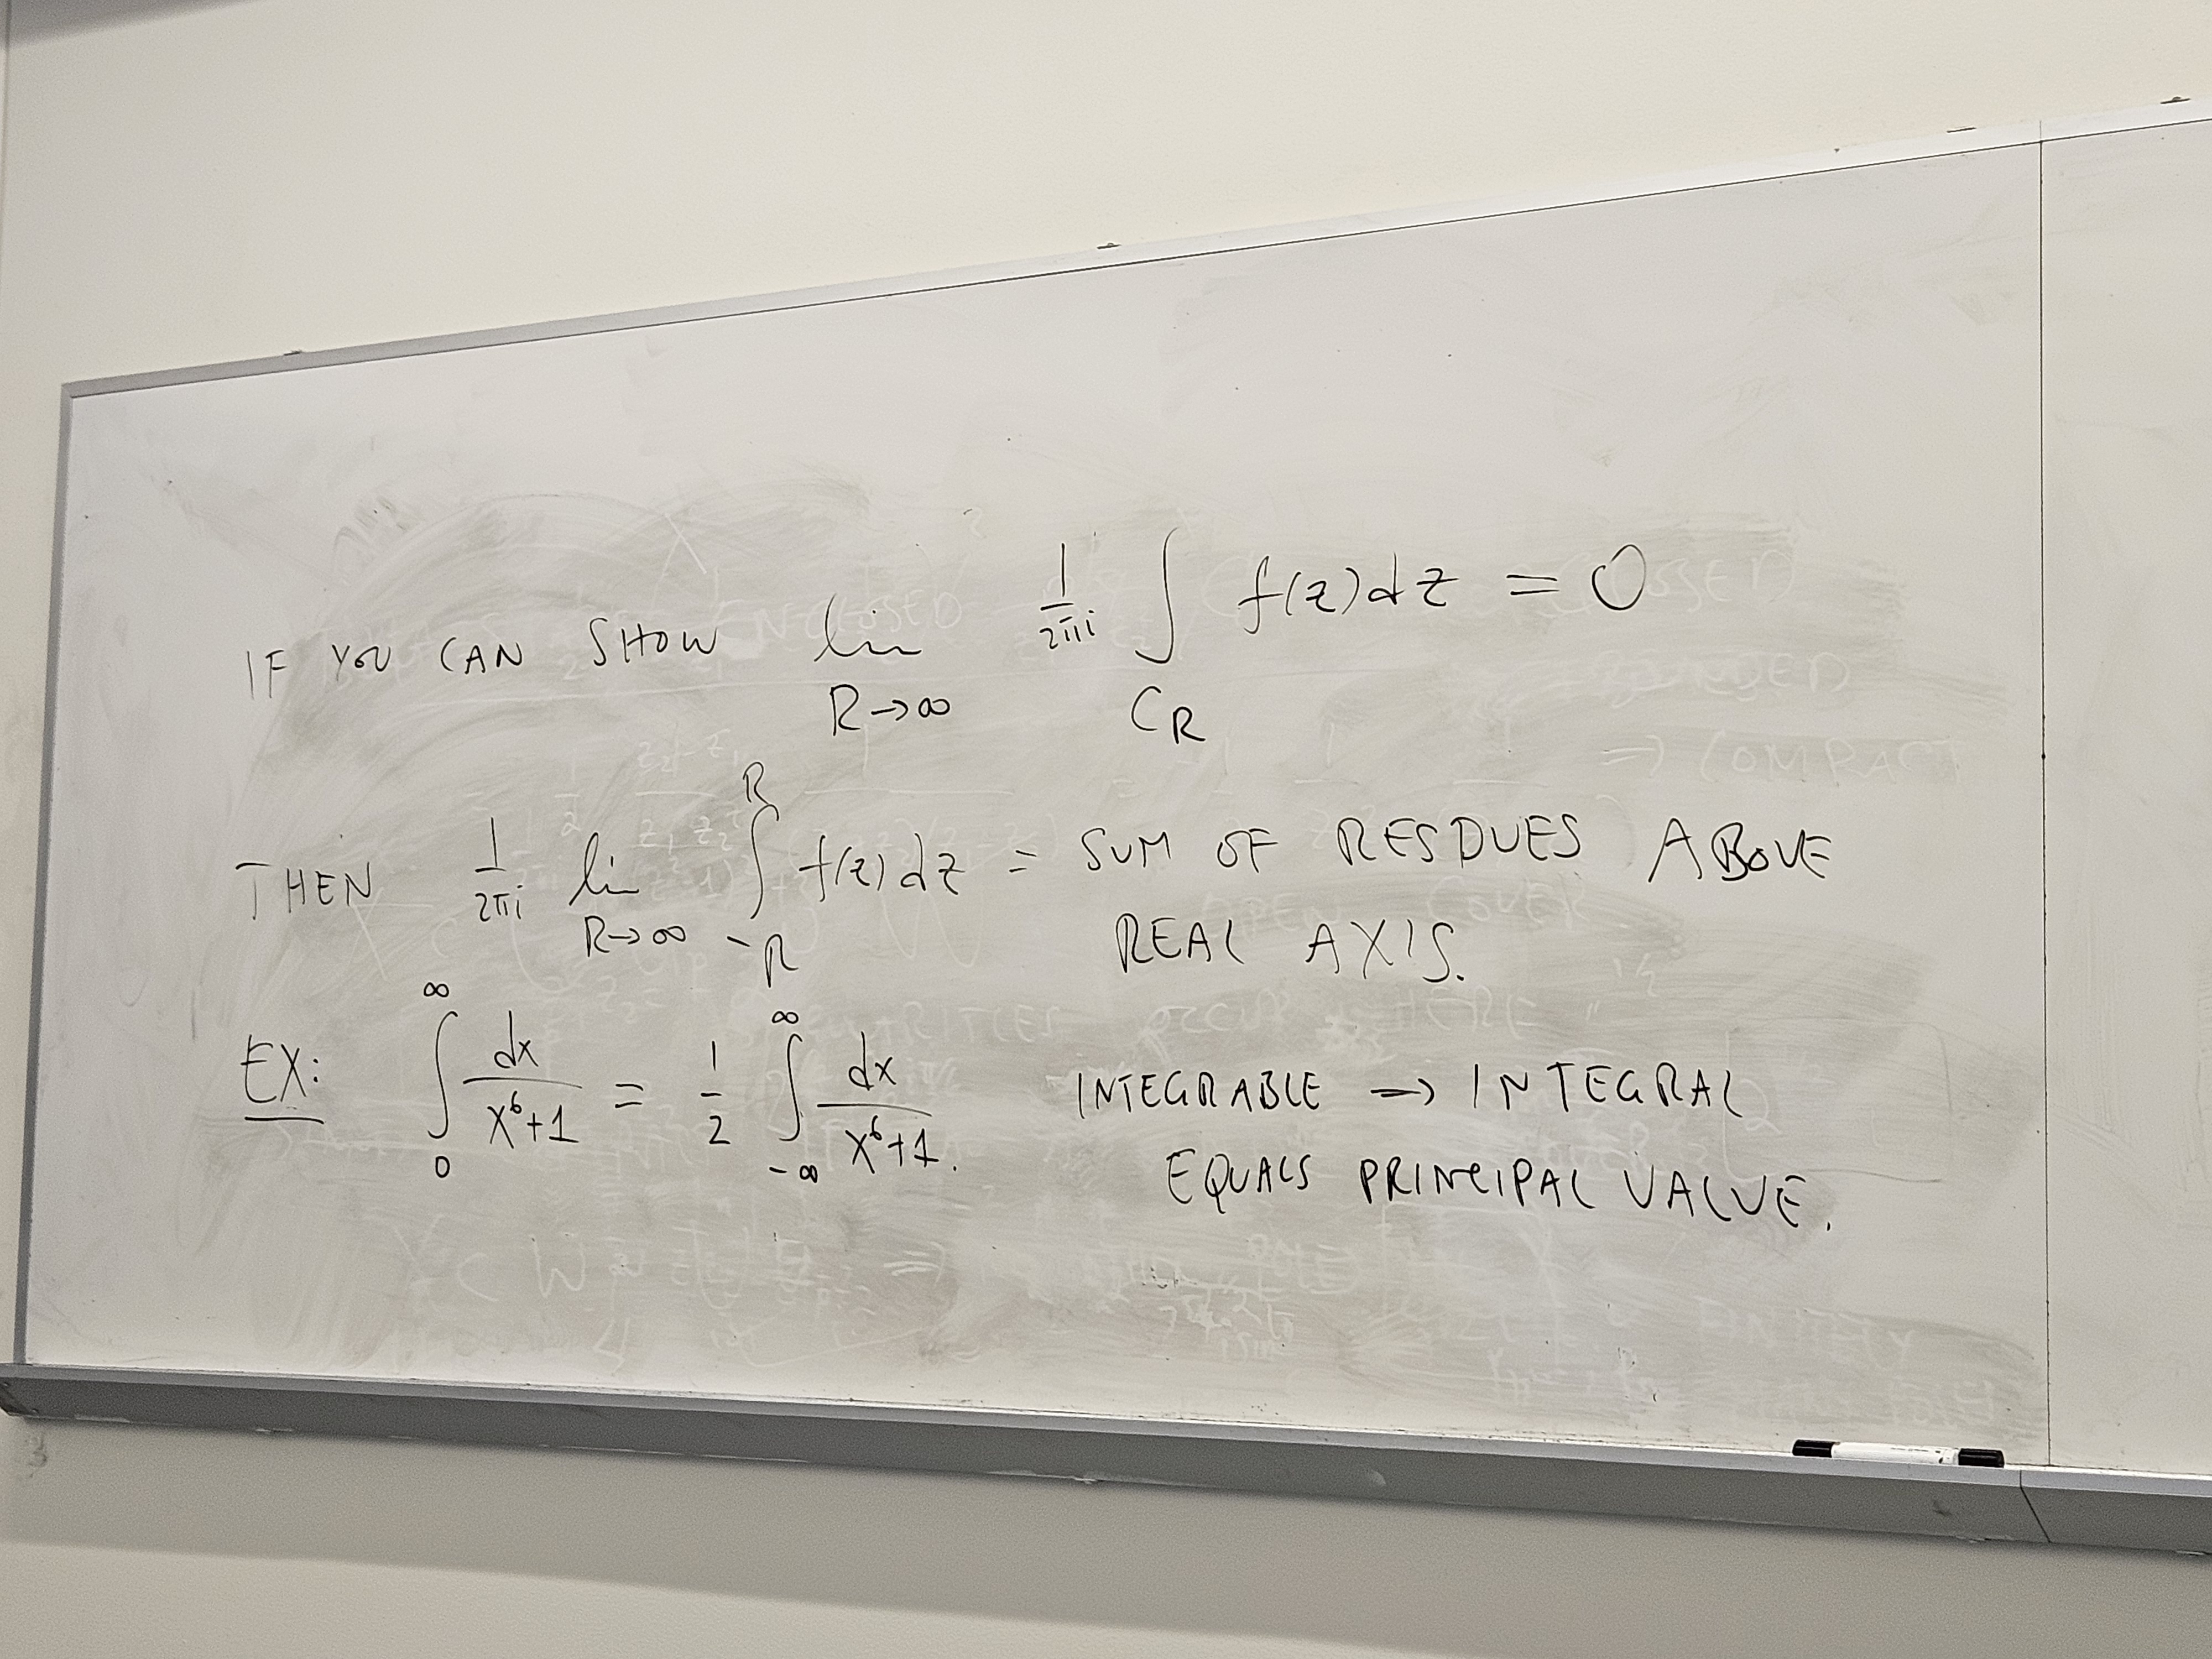 IF YOU CAN SHOW lim R→∞ 1/2πi ∫ C_R f(z)dz = 0
THEN 1/2πi lim R→∞ ∫_{-R}^{R} f(z)dz = SUM OF RESDUES ABOVE
REAL AXIS.
EX: ∫_0^∞ dx/(x⁶+1) = 1/2 ∫_{-∞}^∞ dx/(x⁶+1). INTEGRABLE → INTEGRAL
EQUALS PRINCIPAL VALUE.